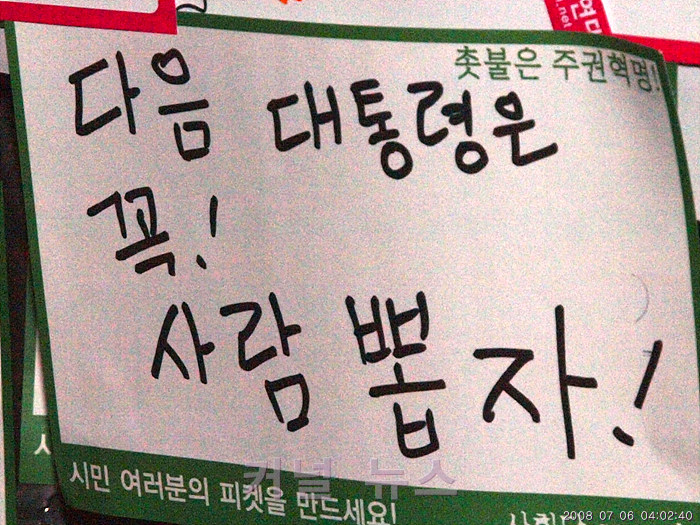 촛불은 주권혁명!
다음 대통령은
꼭!
사람 뽑자!
시민 여러분의 피켓을 만드세요!
커널 뉴스
2008 07 06 04:02:40